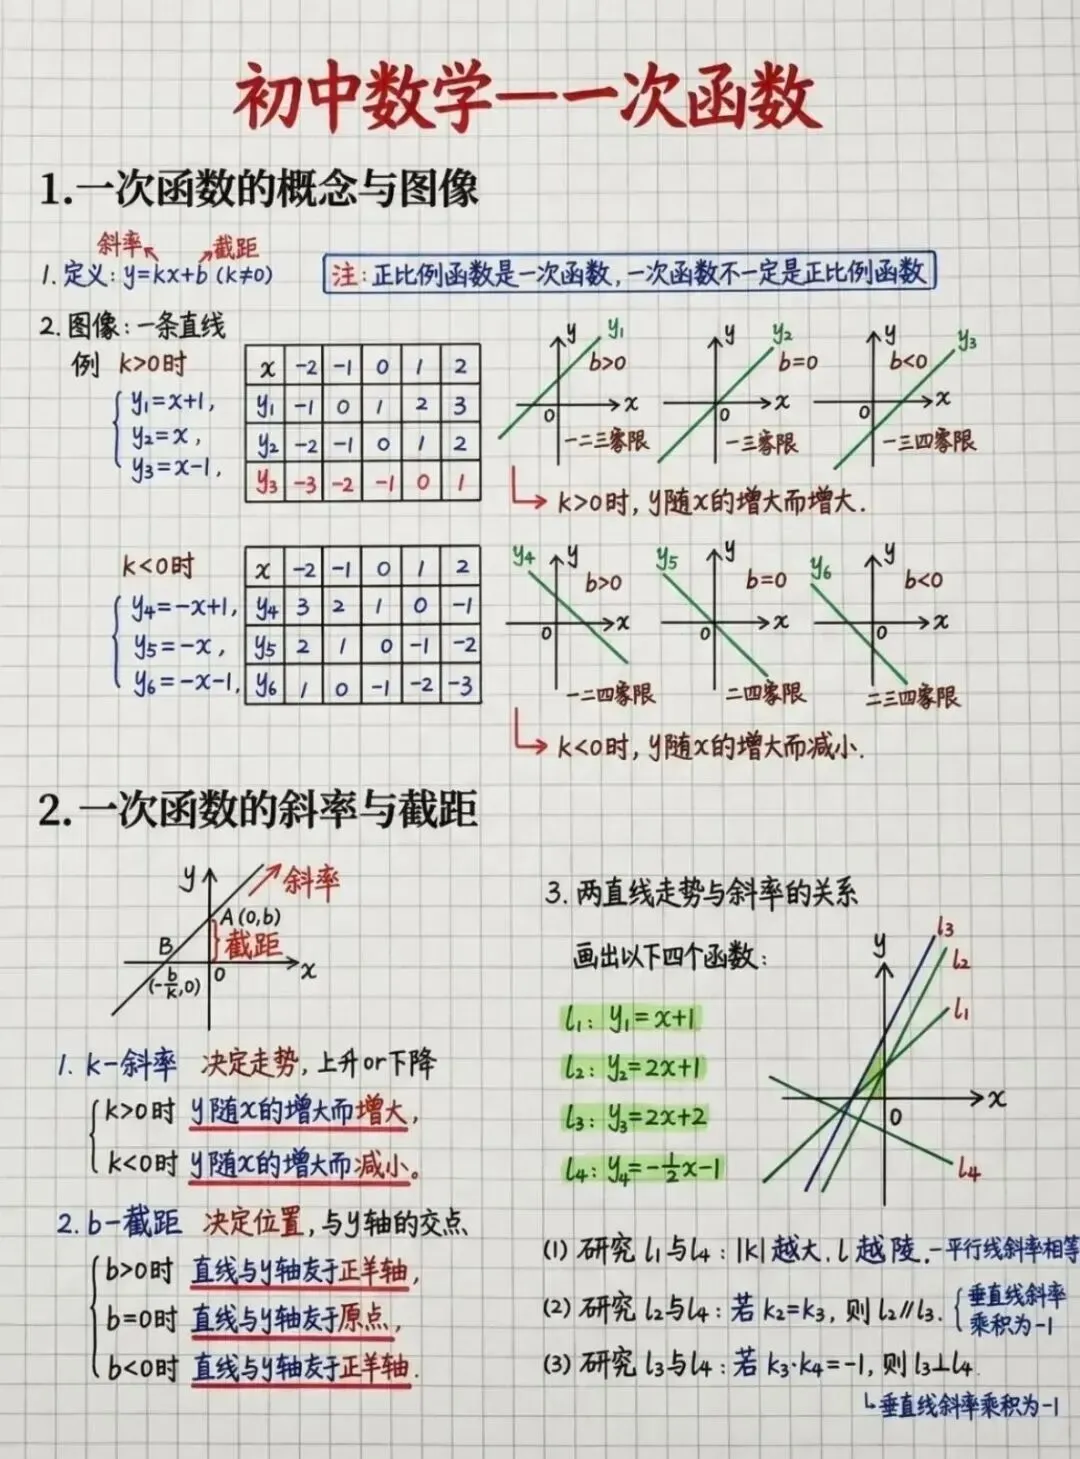 初中数学—一次函数
1.一次函数的概念与图像
斜率 截距
1. 定义: y=kx+b (k≠0)
注: 正比例函数是一次函数, 一次函数不一定是正比例函数
2. 图像: 一条直线
例 k>0时
y₁=x+1,
y₂=x,
y₃=x-1,
x -2 -1 0 1 2
y₁ -1 0 1 2 3
y₂ -2 -1 0 1 2
y₃ -3 -2 -1 0 1
y y₁ b>0 0 x
一二三零限
y y₂ b=0 0 x
一三零限
y y₃ b<0 0 x
一三四零限
k>0时, y随x的增大而增大.
k<0时
y₄=-x+1,
y₅=-x,
y₆=-x-1,
x -2 -1 0 1 2
y₄ 3 2 1 0 -1
y₅ 2 1 0 -1 -2
y₆ 1 0 -1 -2 -3
y₄ y b>0 0 x
一二四零限
y₅ y b=0 0 x
二四零限
y₆ y b<0 0 x
二三四零限
k<0时, y随x的增大而减小.
2.一次函数的斜率与截距
y 斜率
A(0,b)
B 截距
(-b/k,0) 0 x
1. k-斜率 决定走势, 上升or下降
k>0时 y随x的增大而增大,
k<0时 y随x的增大而减小。
2. b-截距 决定位置, 与y轴的交点
b>0时 直线与y轴友于正羊轴,
b=0时 直线与y轴友于原点,
b<0时 直线与y轴友于正羊轴.
3. 两直线走势与斜率的关系
画出以下四个函数:
l₁: y₁=x+1
l₂: y₂=2x+1
l₃: y₃=2x+2
l₄: y₄=-½x-1
y l₃
l₂
l₁
0 x
l₄
(1) 研究 l₁与l₄: |k|越大. l越陵. -平行线斜率相等
(2) 研究 l₂与l₄: 若 k₂=k₃, 则 l₂∥l₃.
垂直线斜率
乘积为-1
(3) 研究 l₃与l₄: 若 k₃·k₄=-1, 则 l₃⊥l₄.
垂直线斜率乘积为-1